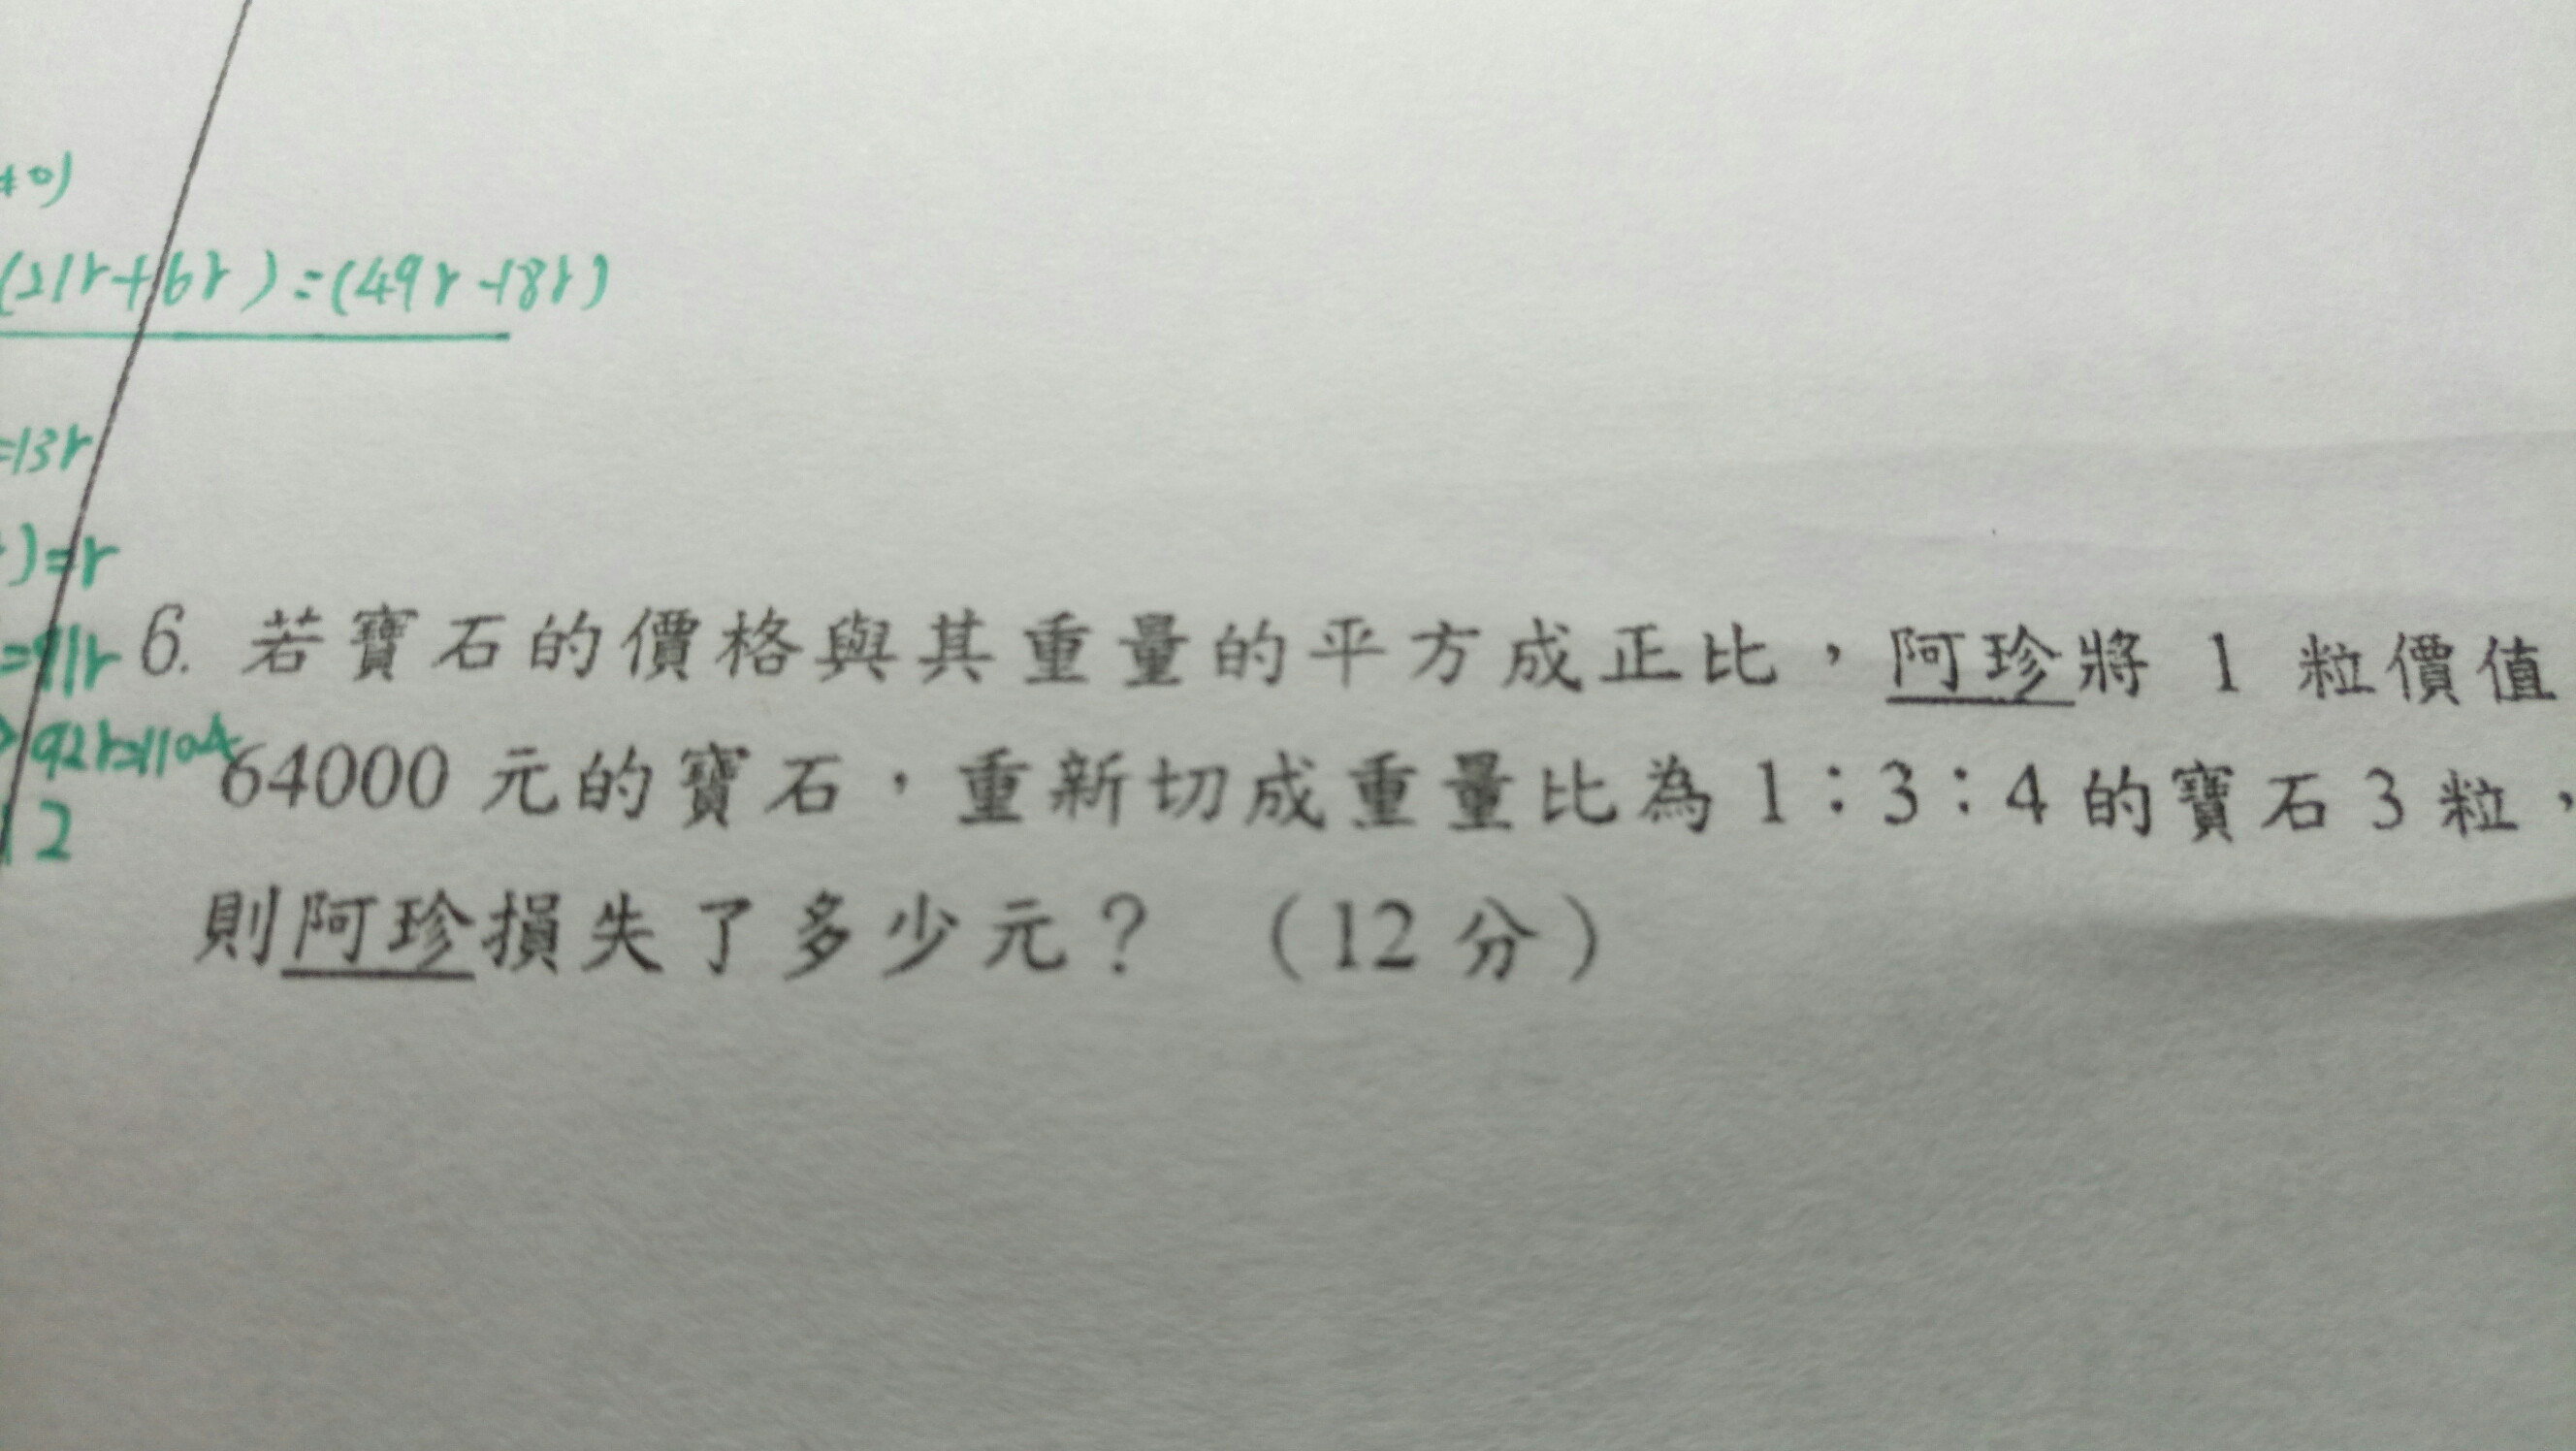 (21r+6r)=(49r-18r)
=13r
)=r
=91r
92r=1104
12
6. 若寶石的價格與其重量的平方成正比，阿珍將 1 粒價值
64000 元的寶石，重新切成重量比為 1：3：4 的寶石 3 粒，
則阿珍損失了多少元？（12 分）